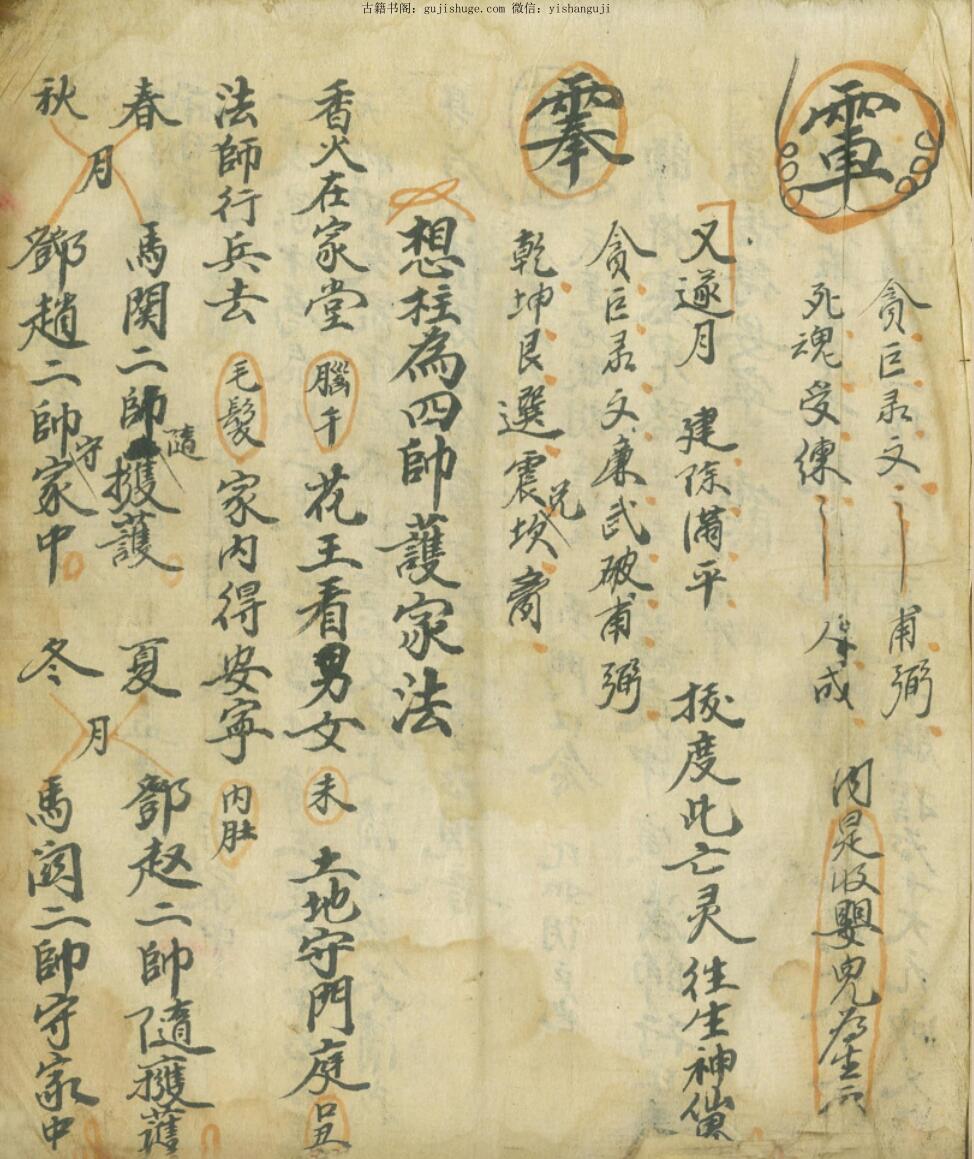 古籍书阁：gujishuge.com 微信：yishanguji
貪巨彔文 甫弼
死魂受煉 成
嬰兒
又逐月 建除滿平 拔度此亡灵往生神仙
貪巨彔文廉武破甫弼
乾坤艮選震兌坎離
想柱為四帥護家法
香火在家堂 腦午 花王看男女 未 土地守門庭 丑
法師行兵去 毛髮 家內得安寧 內肚
春月 馬関二帥隨擁護 夏月 鄧赵二帥隨擁護
秋月 鄧趙二帥守家中 冬月 馬関二帥守家中